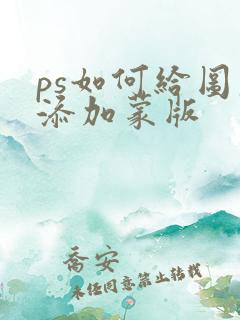 ps如何給圖
添加蒙版
喬安
未任同意禁止轉載